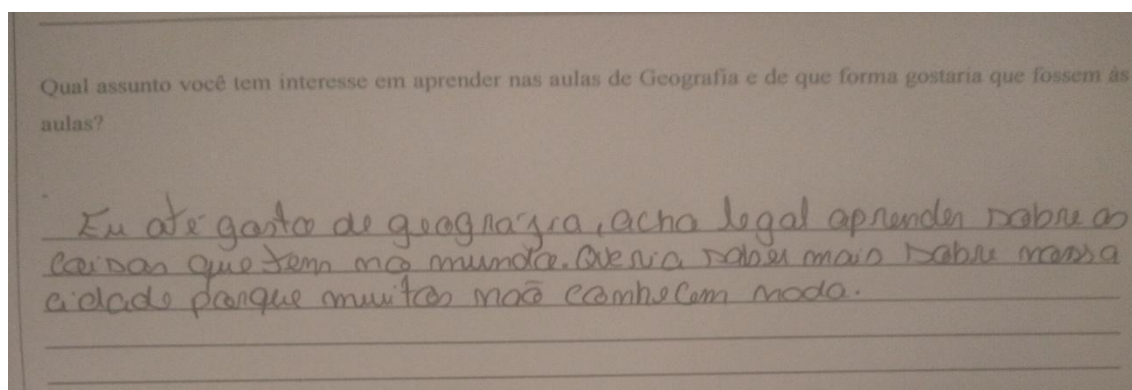 Qual assunto você tem interesse em aprender nas aulas de Geografia e de que forma gostaria que fossem às
aulas?
Eu até gosto de geografia, acho legal aprender sobre as
coisas que tem no mundo. Queria saber mais sobre nossa
cidade porque muitos não conhecem nada.